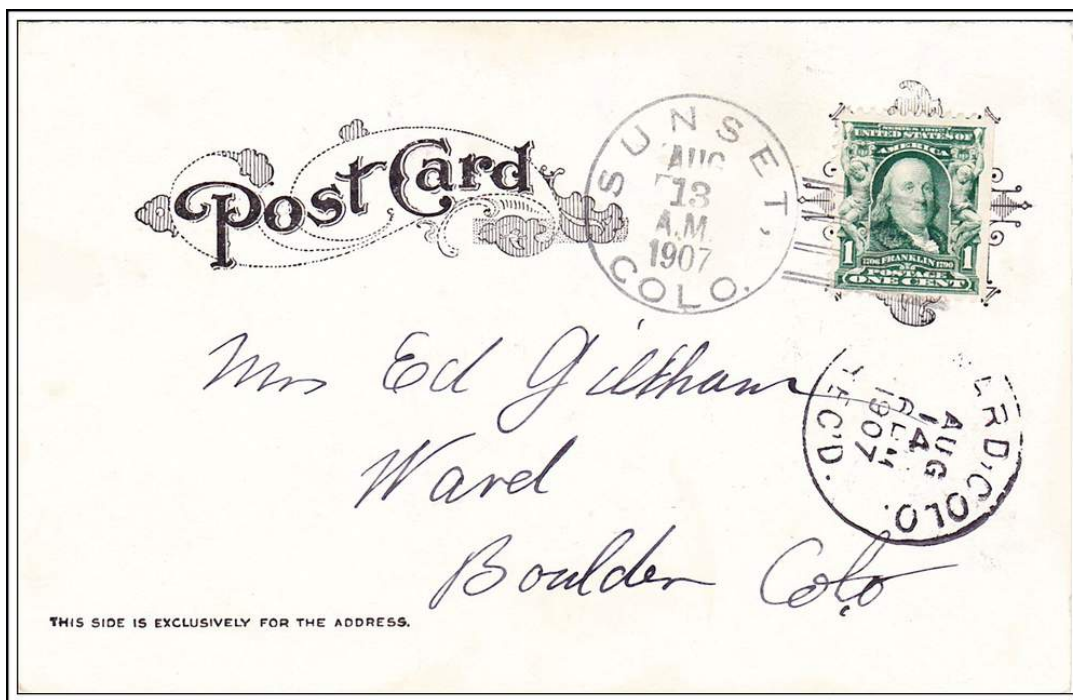 Post Card
SUNSET, COLO.
AUG
13
A.M.
1907
SERIES 1902
UNITED STATES OF
AMERICA
1 1706 FRANKLIN 1790 1
POSTAGE
ONE CENT
Mrs Ed Gillham
Ward
Boulder Colo
RD, COLO.
AUG
14
M
1907
REC'D.
THIS SIDE IS EXCLUSIVELY FOR THE ADDRESS.